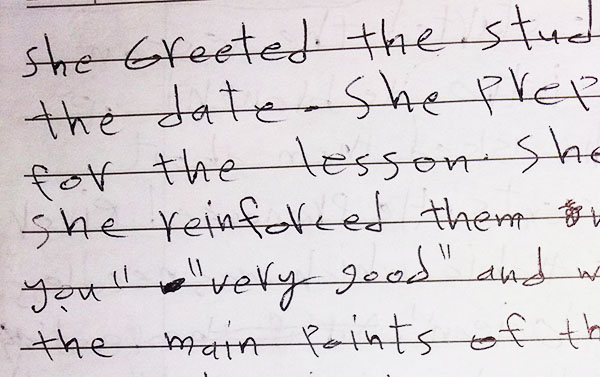 she Greeted the stud
the date. She prep
for the lesson. She
she reinforced them
you" "very good" and w
the main points of th